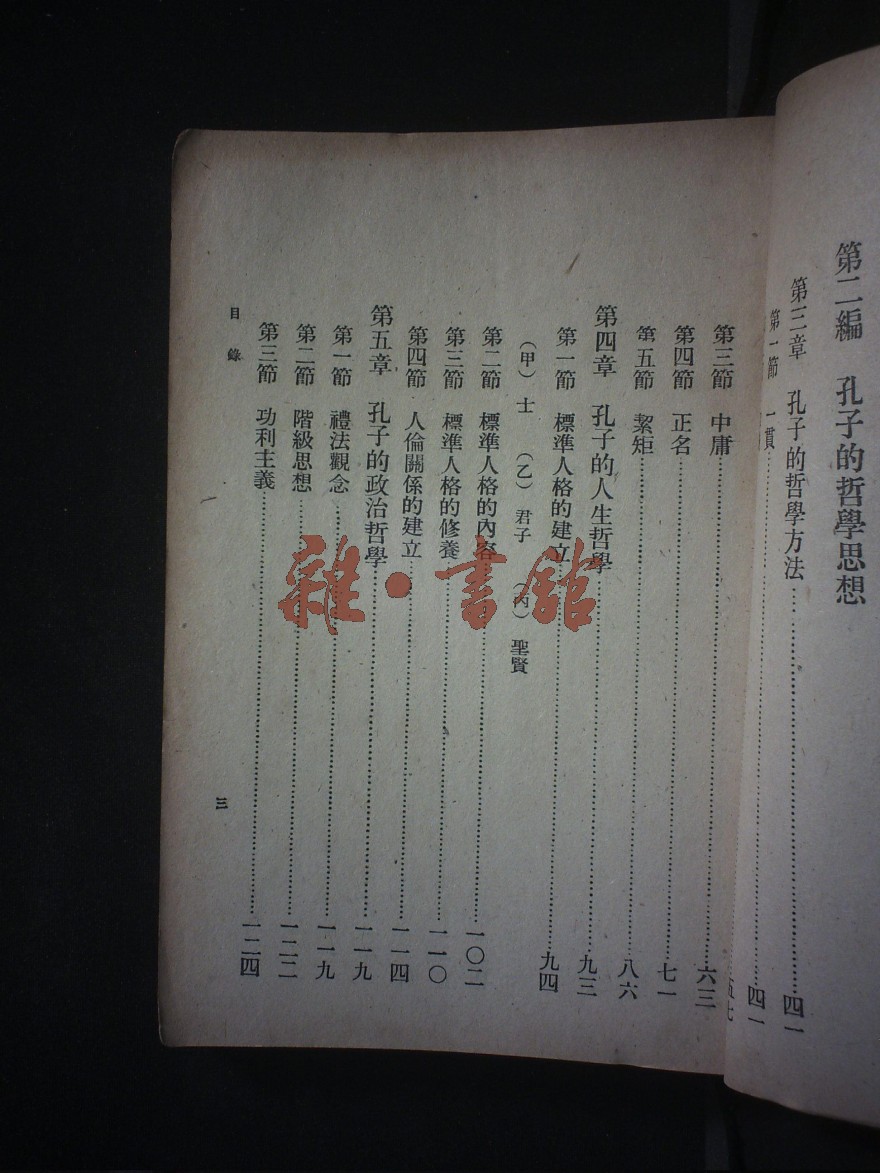 第二編　孔子的哲學思想
第三章　孔子的哲學方法……四一
第一節　一貫……四一
五七
第三節　中庸……六三
第四節　正名……七一
第五節　絜矩……八六
第四章　孔子的人生哲學……九三
第一節　標準人格的建立……九四
（甲）士　（乙）君子　（丙）聖賢
第二節　標準人格的內容……一〇二
第三節　標準人格的修養……一一〇
第四節　人倫關係的建立……一一四
第五章　孔子的政治哲學……一一九
第一節　禮法觀念……一一九
第二節　階級思想……一二二
第三節　功利主義……一二四
目錄
三
雜·書館